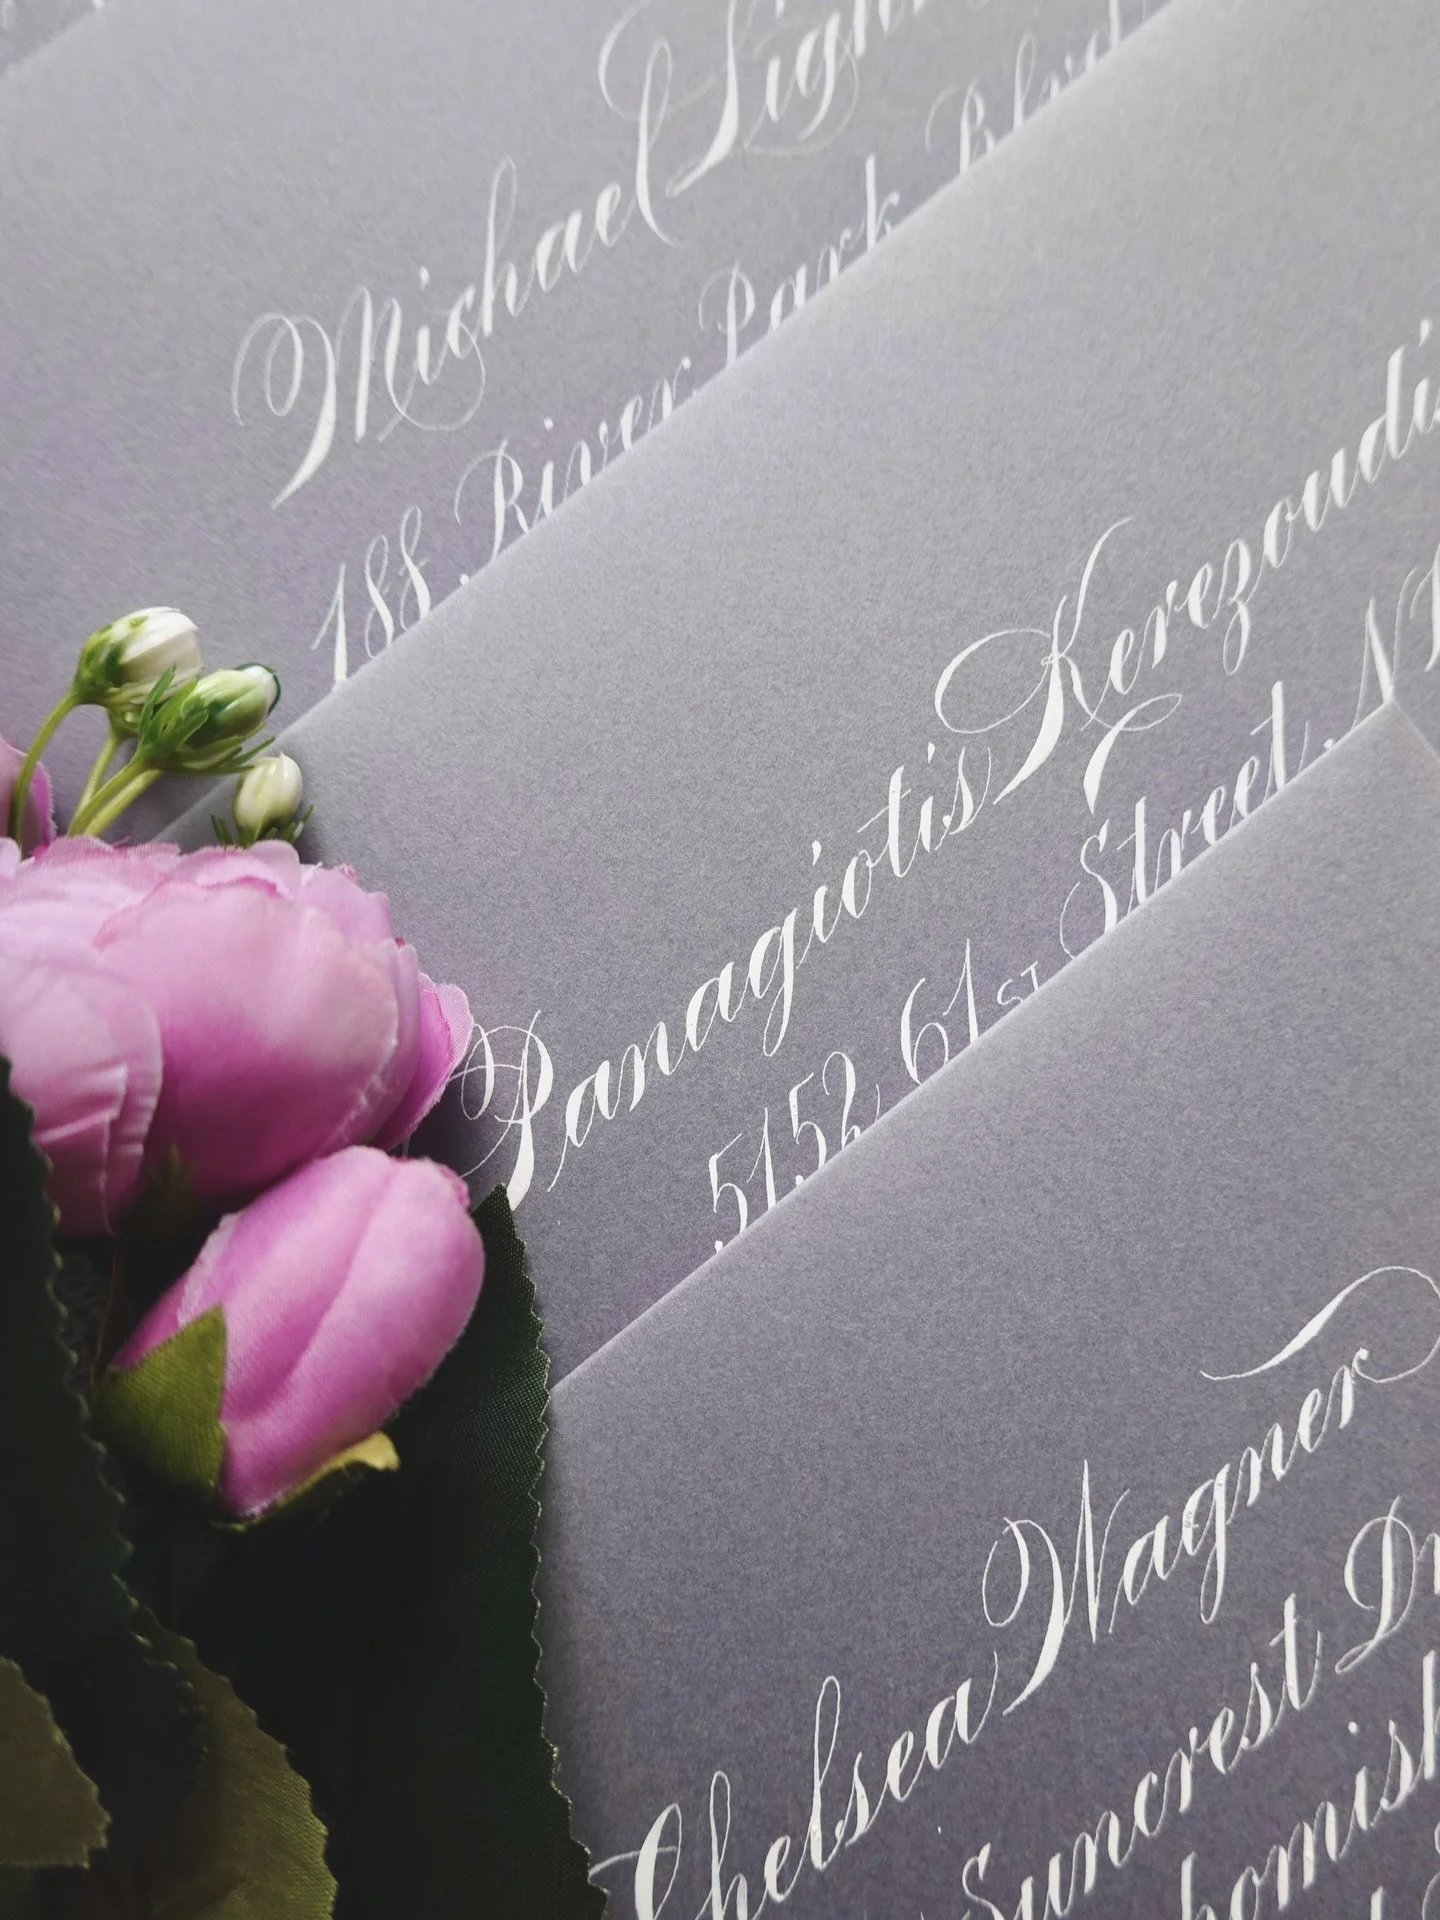 Michael
188 River Park Blvd
Panagiotis Kerezoudis
5152 61ST Street,
Chelsea Wagner
Suncrest